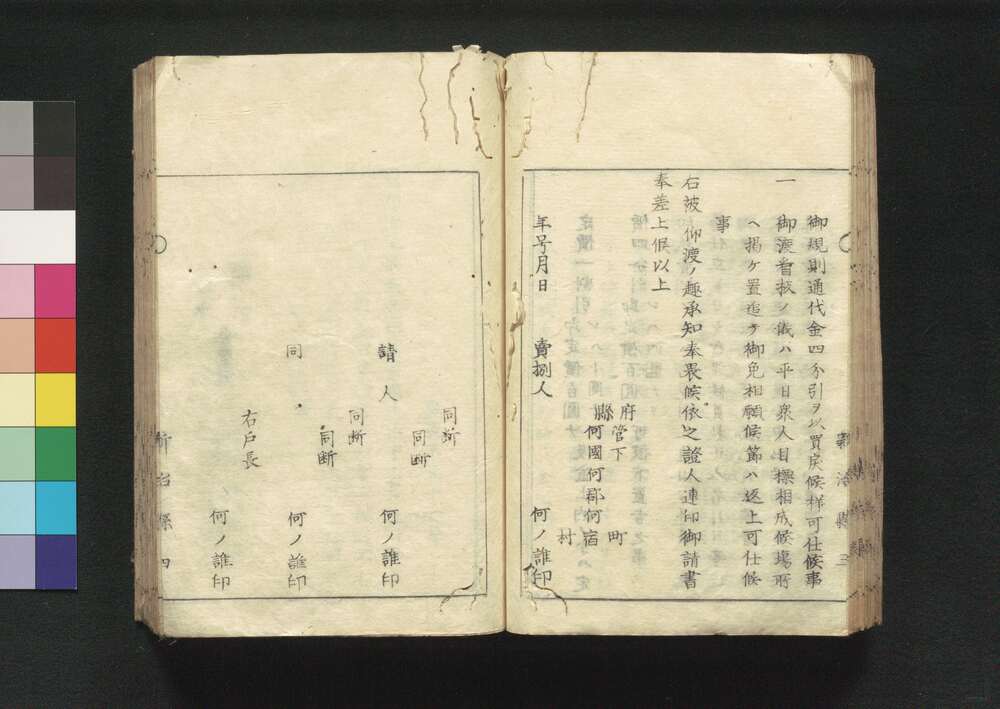 御規則通代金四分引ヲ以買戻候様可仕候事
一 御渡看板ノ儀ハ平日衆人目標相成候場所
ヘ揭ケ置追テ御免相願候節ハ返上可仕候
事
右被 仰渡ノ趣承知奉畏候依之證人連印御請書
奉差上候以上
府
縣
管下
何國何郡何
町
宿
村
年号月日 賣捌人 何ノ誰印
同断
同断
請人 何ノ誰印
同断
同断
同 何ノ誰印
右戸長
何ノ誰印
新治縣 三
新治縣 四